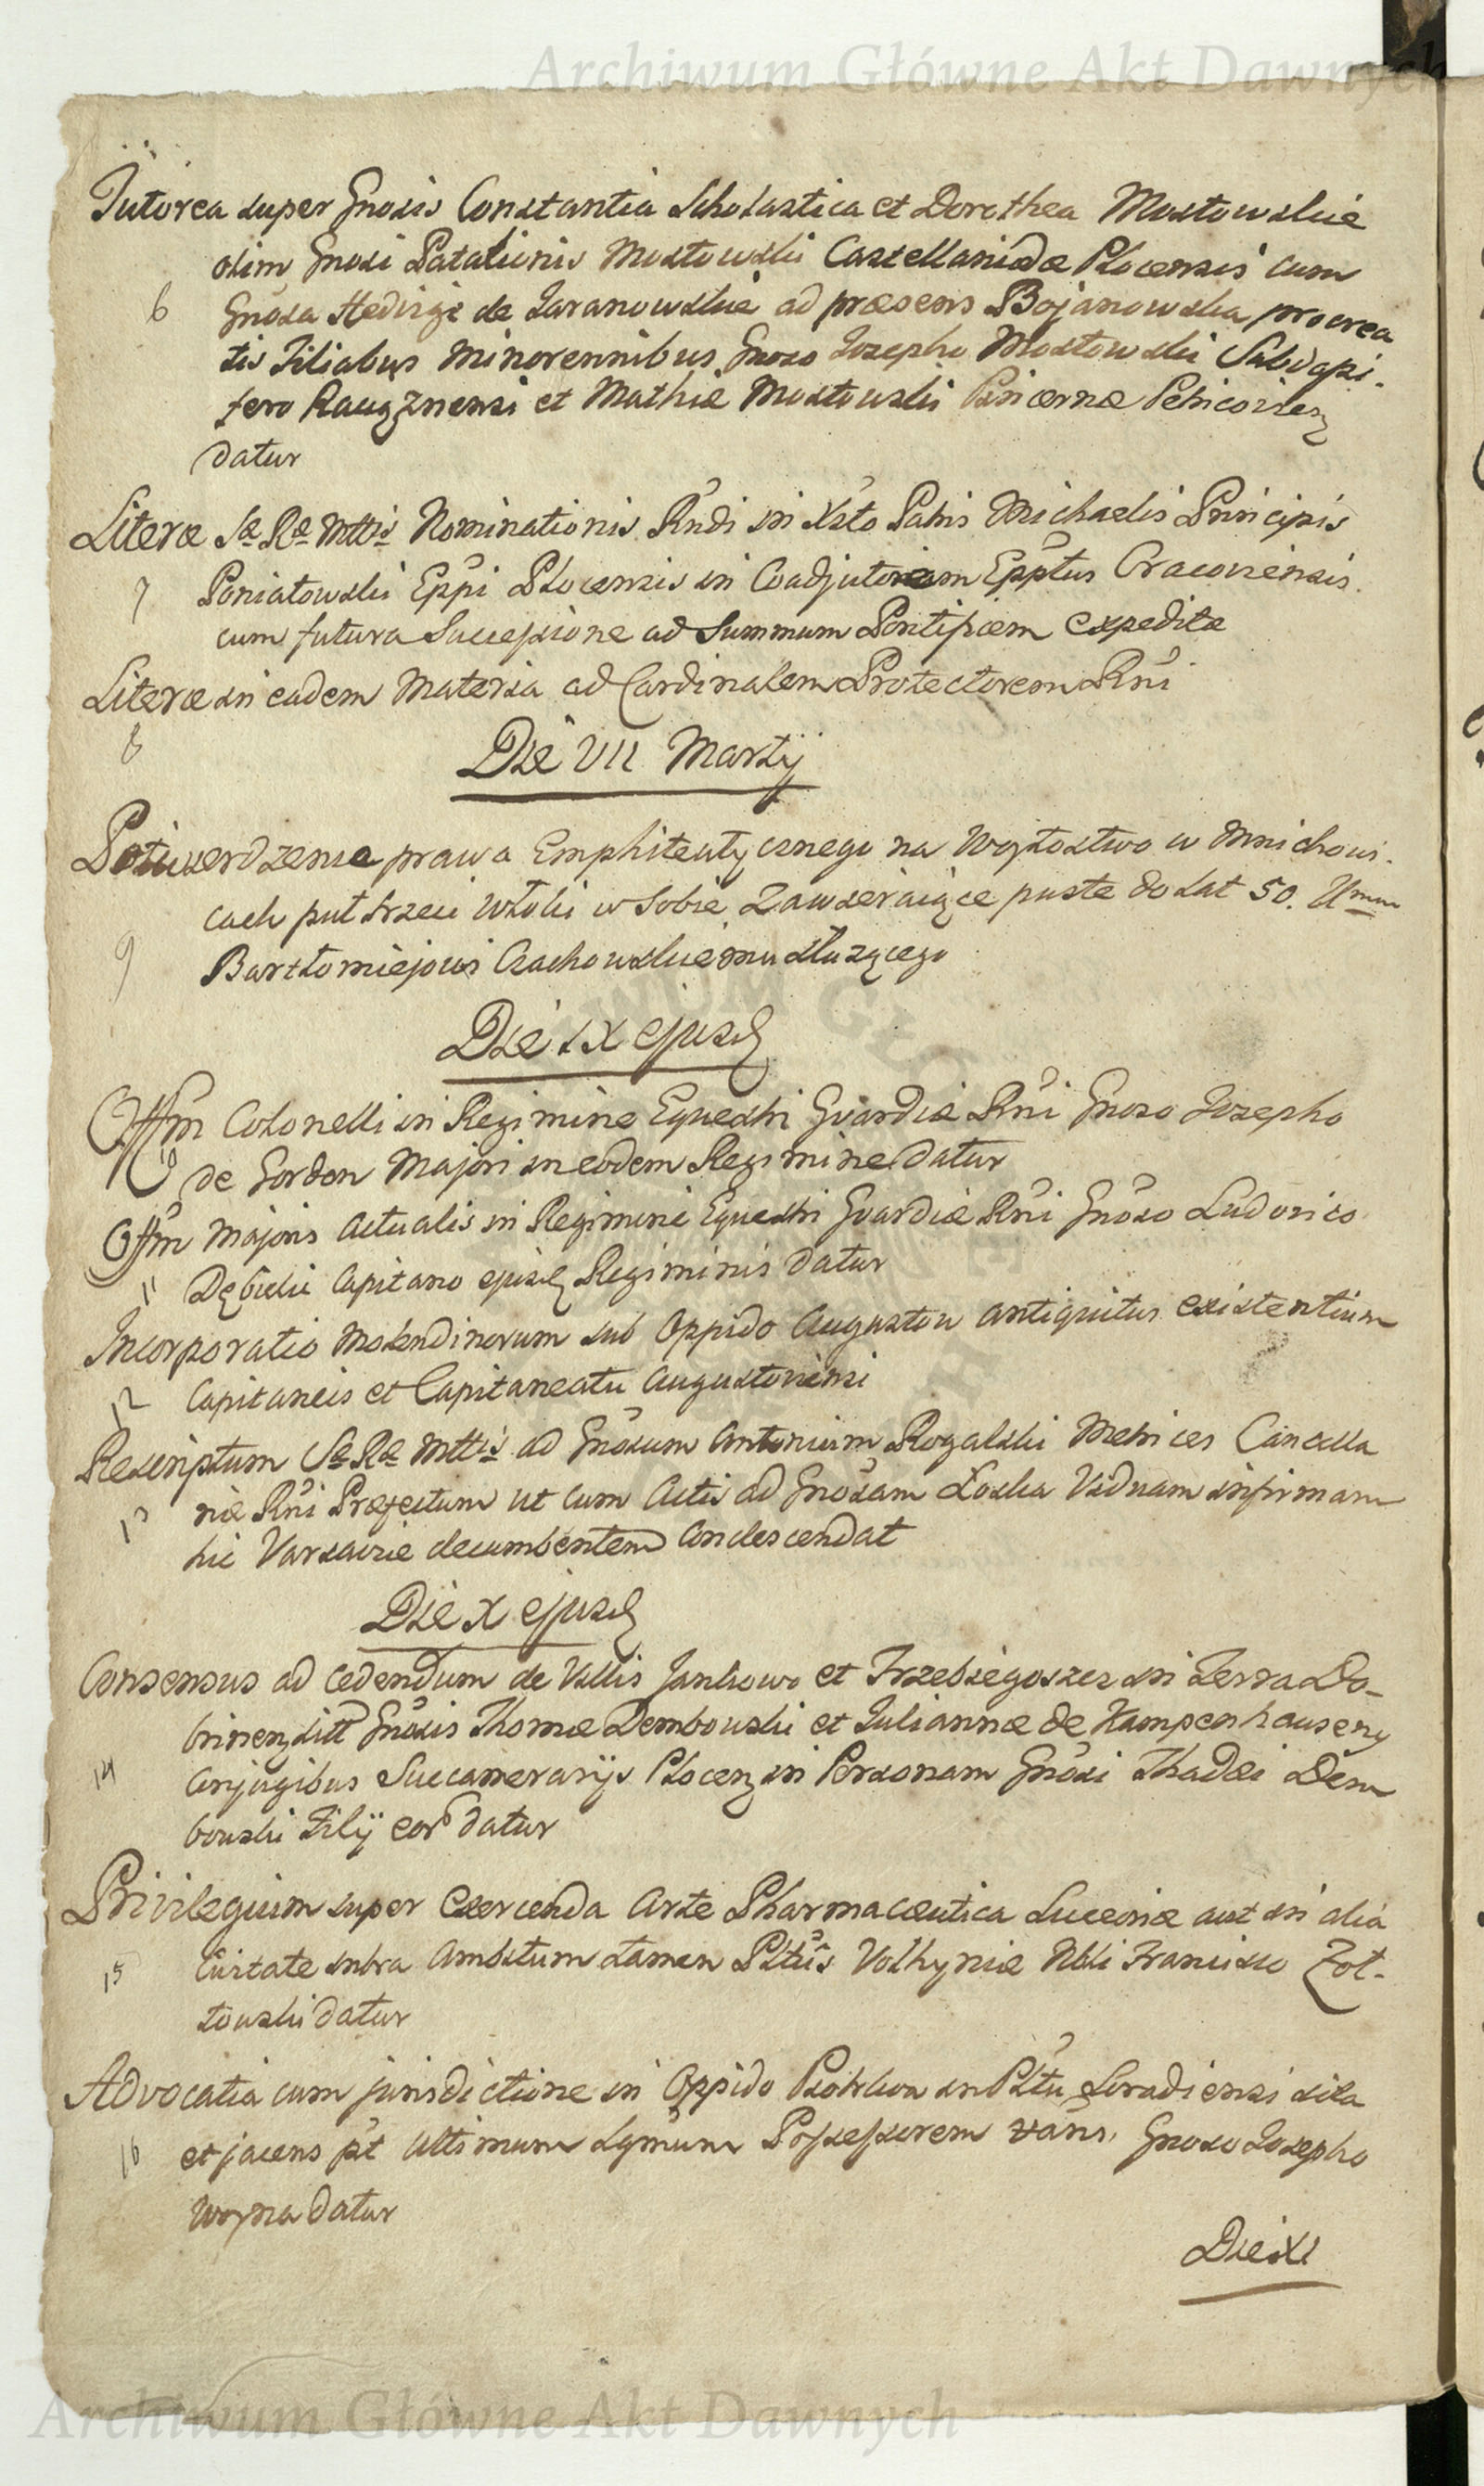 Archiwum Główne Akt Dawnych
Tutorea super Gnosis Constantia Scholastica et Dorothea Mostowskie
olim Gnosi Patalionis Mostowski Castellanidæ Plocensis cum
6 Gnosa Hedvige de Zaranowskie ad præsens Bojanowska procrea
tis Filiabus minorennibus Gnoso Josepho Mostowski Subdapi-
fero et Mathiæ Mostowski Pincernæ
datur
Literæ Sæ Ræ Mttis Nominationis Rndi in Xsto Patris Michaelis Principis
7 Poniatowski Eppi Plocensis in Coadjutoriam Epptus Cracoviensis
cum futura Successione ad Summum Pontificem expeditæ
Literæ in eadem Materia ad Cardinalem Protectorem Rni
8
Die VII Martij
Potwierdzenie prawa Emphiteutycznego na Woytostwo w Mnichowi-
cach puł trzeci Włoki w sobie Zawieraiące puste do Lat 50. Urmu
9 Bartłomiejowi Czachowskiemu służącego
Die IX ejusd
Offm Colonelli in Regimine Equestri Gvardiæ Rni Gnoso Josepho
10 de Gordon Majori in eodem Regimine datur
Offm Majoris actualis in Regimine Equestri Gvardiæ Rni Gnoso Ludovico
11 Dębicki Capitano ejusd Regiminis datur
Incorporatio Molendinorum sub Oppido Augustow antiquitus existentium
12 Capitaneis et Capitaneatu Augustoviensi
Rescriptum Sæ Ræ Mttis ad Gnosum Antonium Rogalski Metrices Cancella
13 riæ Rni Præfectum ut cum Actis ad Gnosam Łoska Viduam infirmam
hic Varsaviæ decumbentem Condescendat
Die X ejusd
Consensus ad cedendum de Villis Jankowo et Trzebiegoszcz in Terra Do-
brinen sitt Gnosis Thomæ Dembowski et Juliannæ de Kampenhauseny
14 Conjugibus Succamerarijs Plocen in Personam Gnosi Thadæi Dem
bowski Filij eor datur
Privilegium super Exercenda Arte Pharmaceutica Luceoriæ aut in alia
15 Civitate intra Ambitum tamen Pltus Volhyniæ Nbli Francisco Zoł-
towski datur
Advocatia cum jurisdictione in Oppido Piotrkow in Pltu Siradiensi sita
16 et jacens pt ultimum Lgmum Possessorem vans. Gnoso Josepho
Woyna datur
Die XI
Archiwum Główne Akt Dawnych